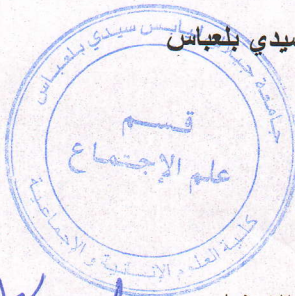 سيدي بلعباس
جامعة جيلالي ليابس سيدي بلعباس
قسم
علم الإجتماع
كلية العلوم الإنسانية و الإجتماعية